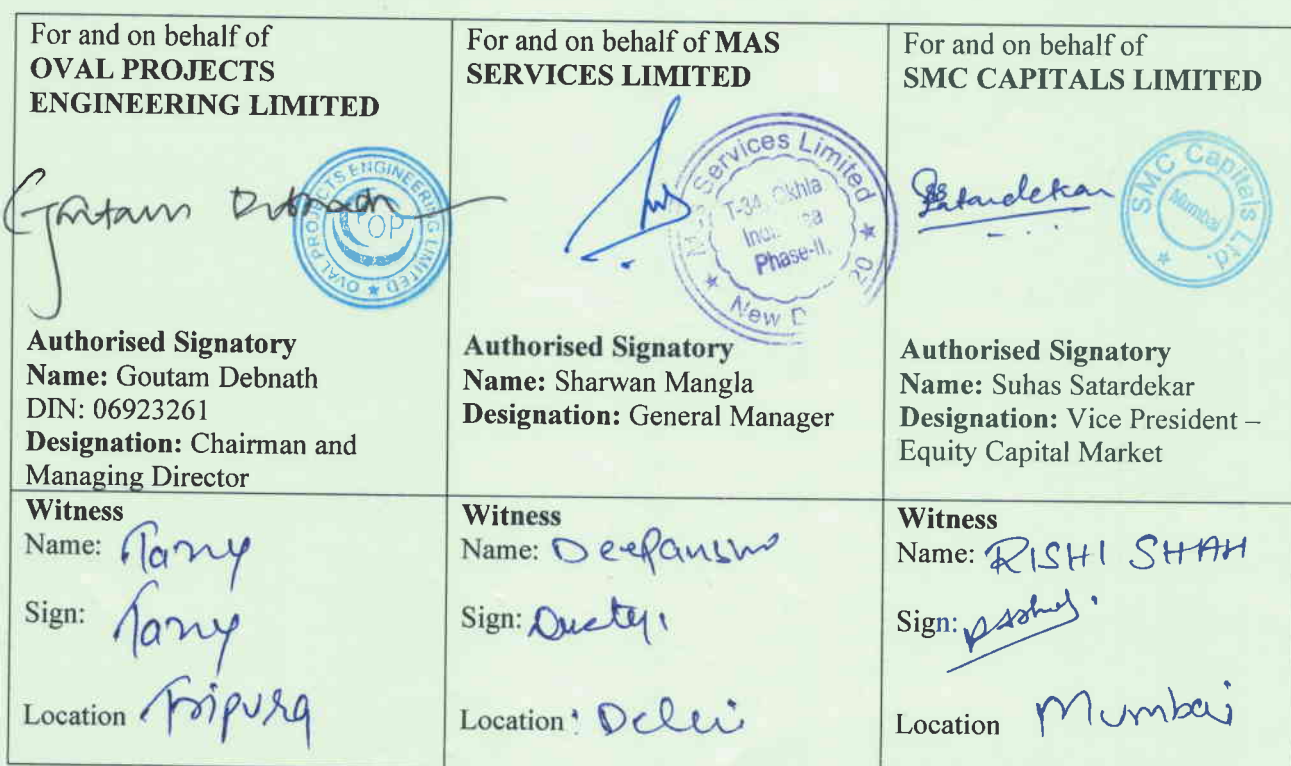 For and on behalf of
OVAL PROJECTS
ENGINEERING LIMITED
Goutam Debnath
OVAL PROJECTS ENGINEERING LIMITED
OP
Authorised Signatory
Name: Goutam Debnath
DIN: 06923261
Designation: Chairman and
Managing Director
Witness
Name: Tany
Sign: Tany
Location Tripura
For and on behalf of MAS
SERVICES LIMITED
Services Limited
T-34, Okhla
Phase-II,
New D
20
Authorised Signatory
Name: Sharwan Mangla
Designation: General Manager
Witness
Name: Deepanshu
Sign:
Location : Delhi
For and on behalf of
SMC CAPITALS LIMITED
Satardekar
SMC Capitals Ltd.
Mumbai
Authorised Signatory
Name: Suhas Satardekar
Designation: Vice President –
Equity Capital Market
Witness
Name: RISHI SHAH
Sign:
Location Mumbai